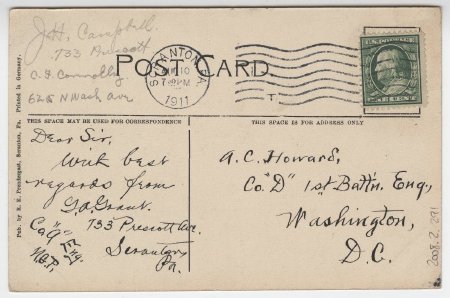 J.H. Campbell.
733 Prescott
C.F. Connolly
626 N Wash Ave
POST CARD.
SCRANTON, PA.
1911
T.
THIS SPACE MAY BE USED FOR CORRESPONDENCE
THIS SPACE IS FOR ADDRESS ONLY
Dear Sir,
With best
regards from
G.A. Grant.
Co "G"
733 Prescott Ave.
Scranton
Pa.
A.C. Howard,
Co. "D" 1st Batt'n. Eng.,
Washington,
D.C.
Pub. by R. E. Prendergast, Scranton, Pa. Printed in Germany.
2008.2.291